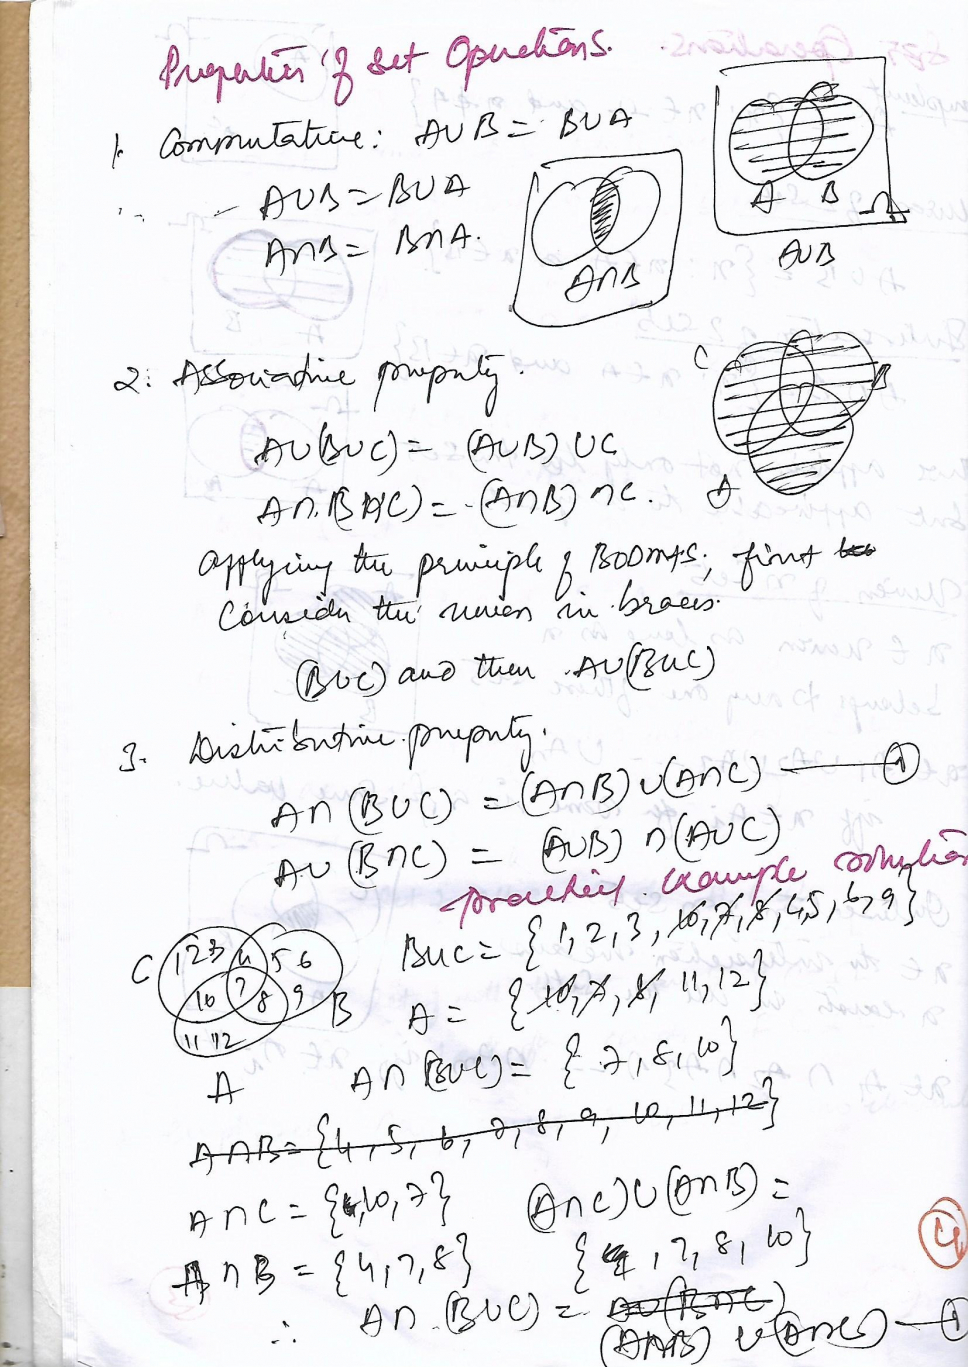 Properties of Set Operations.
1. Commutative: AUB = BUA
AUB = BUA
A∩B = B∩A.
A∩B
A B Ω
AUB
2. Associative property.
C B
A
AU(BUC) = (AUB) UC
A∩(B∩C) = (A∩B) ∩C.
applying the principle of BODMAS, first
Consider the union in braces.
(BUC) and then AU(BUC)
3. Distributive property.
A∩(BUC) = (A∩B)U(A∩C) — 1
AU(B∩C) = (AUB) ∩(AUC)
practical example solution
C 1 2 3 4 5 6
10 7 8 9 B
11 12
A
BUC = {1, 2, 3, 10, 7, 8, 4, 5, 6, 9}
A = {10, 7, 8, 11, 12}
A∩(BUC) = {7, 8, 10}
A∩B = {4, 5, 6, 7, 8, 9, 10, 11, 12}
A∩C = {10, 7} (A∩C)U(A∩B) =
A∩B = {4, 7, 8} {7, 8, 10}
∴ A∩(BUC) = AU(B∩C)
(A∩B) U(A∩C) — 1
4